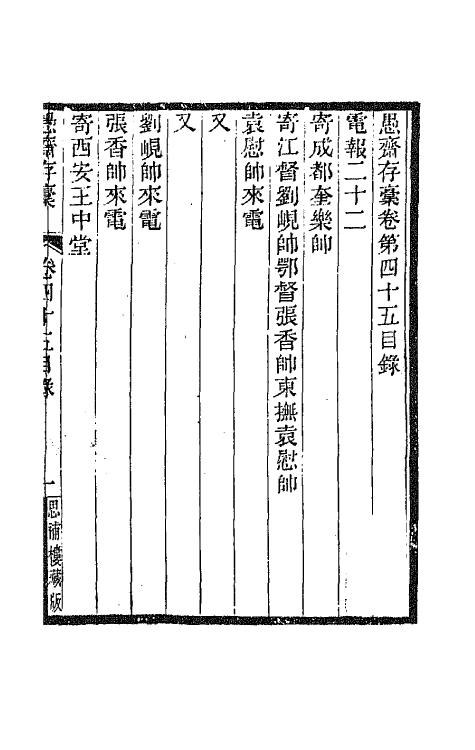 愚齋存稾卷第四十五目錄
電報二十二
寄成都奎樂帥
寄江督劉峴帥鄂督張香帥東撫袁慰帥
袁慰帥來電
又
又
劉峴帥來電
張香帥來電
寄西安王中堂
愚齋存稾
卷四十五目錄
一
思補樓藏版